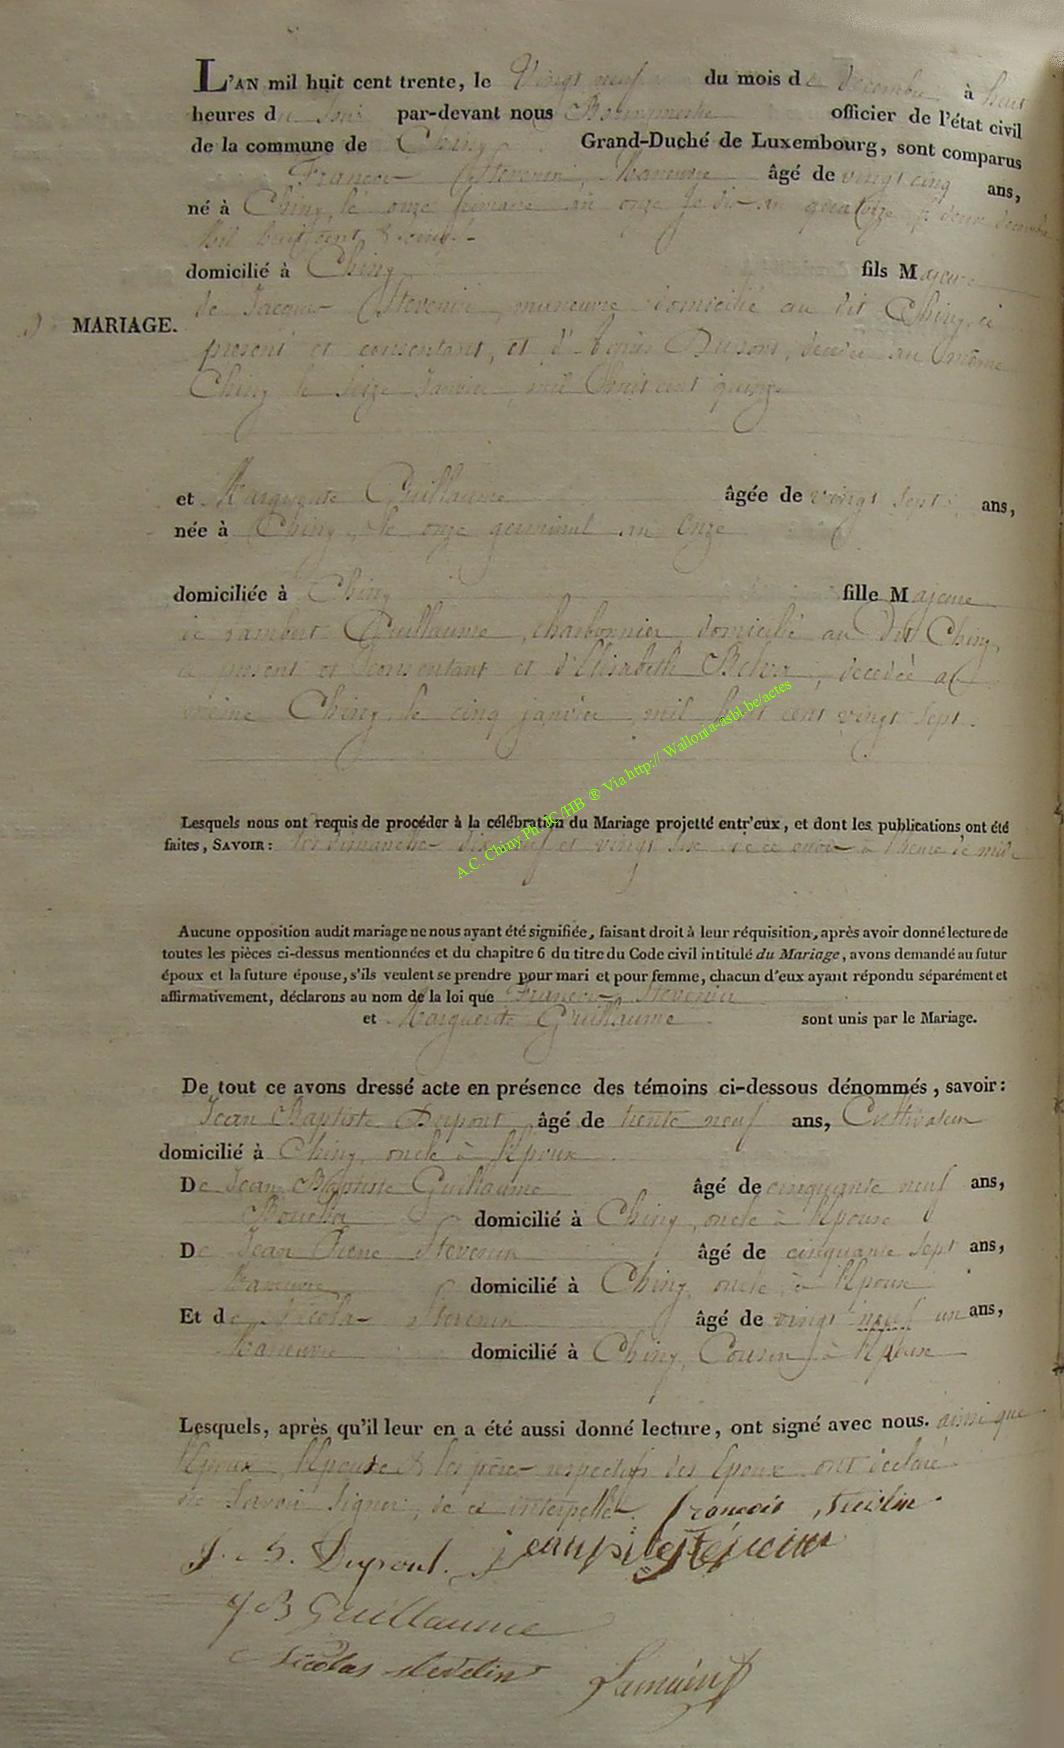 L'AN mil huit cent trente, le Vingt neuf du mois de Decembre à huit
heures du soir par-devant nous Bourgmestre officier de l'état civil
de la commune de Chiny Grand-Duché de Luxembourg, sont comparus
François Stevenin, Maneuvre âgé de vingt cinq ans,
né à Chiny, le onze frimaire an
mil huit cent
domicilié à Chiny fils Majeur
de Jacques Stevenin, maneuvre domicilié au dit Chiny, ci
MARIAGE.
present et consentant, et d' Dupont, decedée au même
Chiny le seize Janvier mil huit cent quinze
et Marguerite Guillaume âgée de vingt sept ans,
née à Chiny, le onze germinal an Onze
domiciliée à Chiny fille Majeure
de Lambert Guillaume, charbonnier domicilié au dit Chiny,
ci present et consentant et d'Elisabeth decedée au
même Chiny, le cinq janvier mil huit cent vingt sept.
Lesquels nous ont requis de procéder à la célébration du Mariage projetté entr'eux, et dont les publications ont été
faites, SAVOIR: les dimanches dix neuf et vingt six de ce mois à l'heure de midi
Aucune opposition audit mariage ne nous ayant été signifiée, faisant droit à leur réquisition, après avoir donné lecture de
toutes les pièces ci-dessus mentionnées et du chapitre 6 du titre du Code civil intitulé du Mariage, avons demandé au futur
époux et la future épouse, s'ils veulent se prendre pour mari et pour femme, chacun d'eux ayant répondu séparément et
affirmativement, déclarons au nom de la loi que François Stevenin
et Marguerite Guillaume sont unis par le Mariage.
De tout ce avons dressé acte en présence des témoins ci-dessous dénommés, savoir:
Jean Baptiste Dupont âgé de trente neuf ans, Cultivateur
domicilié à Chiny, oncle à l'Epoux
De Jean Baptiste Guillaume âgé de cinquante neuf ans,
domicilié à Chiny, oncle à l'Epouse
De Jean Pierre Stevenin âgé de cinquante sept ans,
Maneuvre domicilié à Chiny, oncle à l'Epoux
Et de Nicolas Stevenin âgé de vingt neuf un ans,
Maneuvre domicilié à Chiny, Cousin à l'Epoux
Lesquels, après qu'il leur en a été aussi donné lecture, ont signé avec nous. ainsi que
l'Epoux, l'Epouse & les pères respectifs des Epoux ont déclaré
ne Savoir Signer, de ce interpellés. françois
J. B. Dupont.
J B Guillaume
Nicolas
A.C. Chiny Ph JC/HB ® Via http:// Wallonia-asbl.be/actes